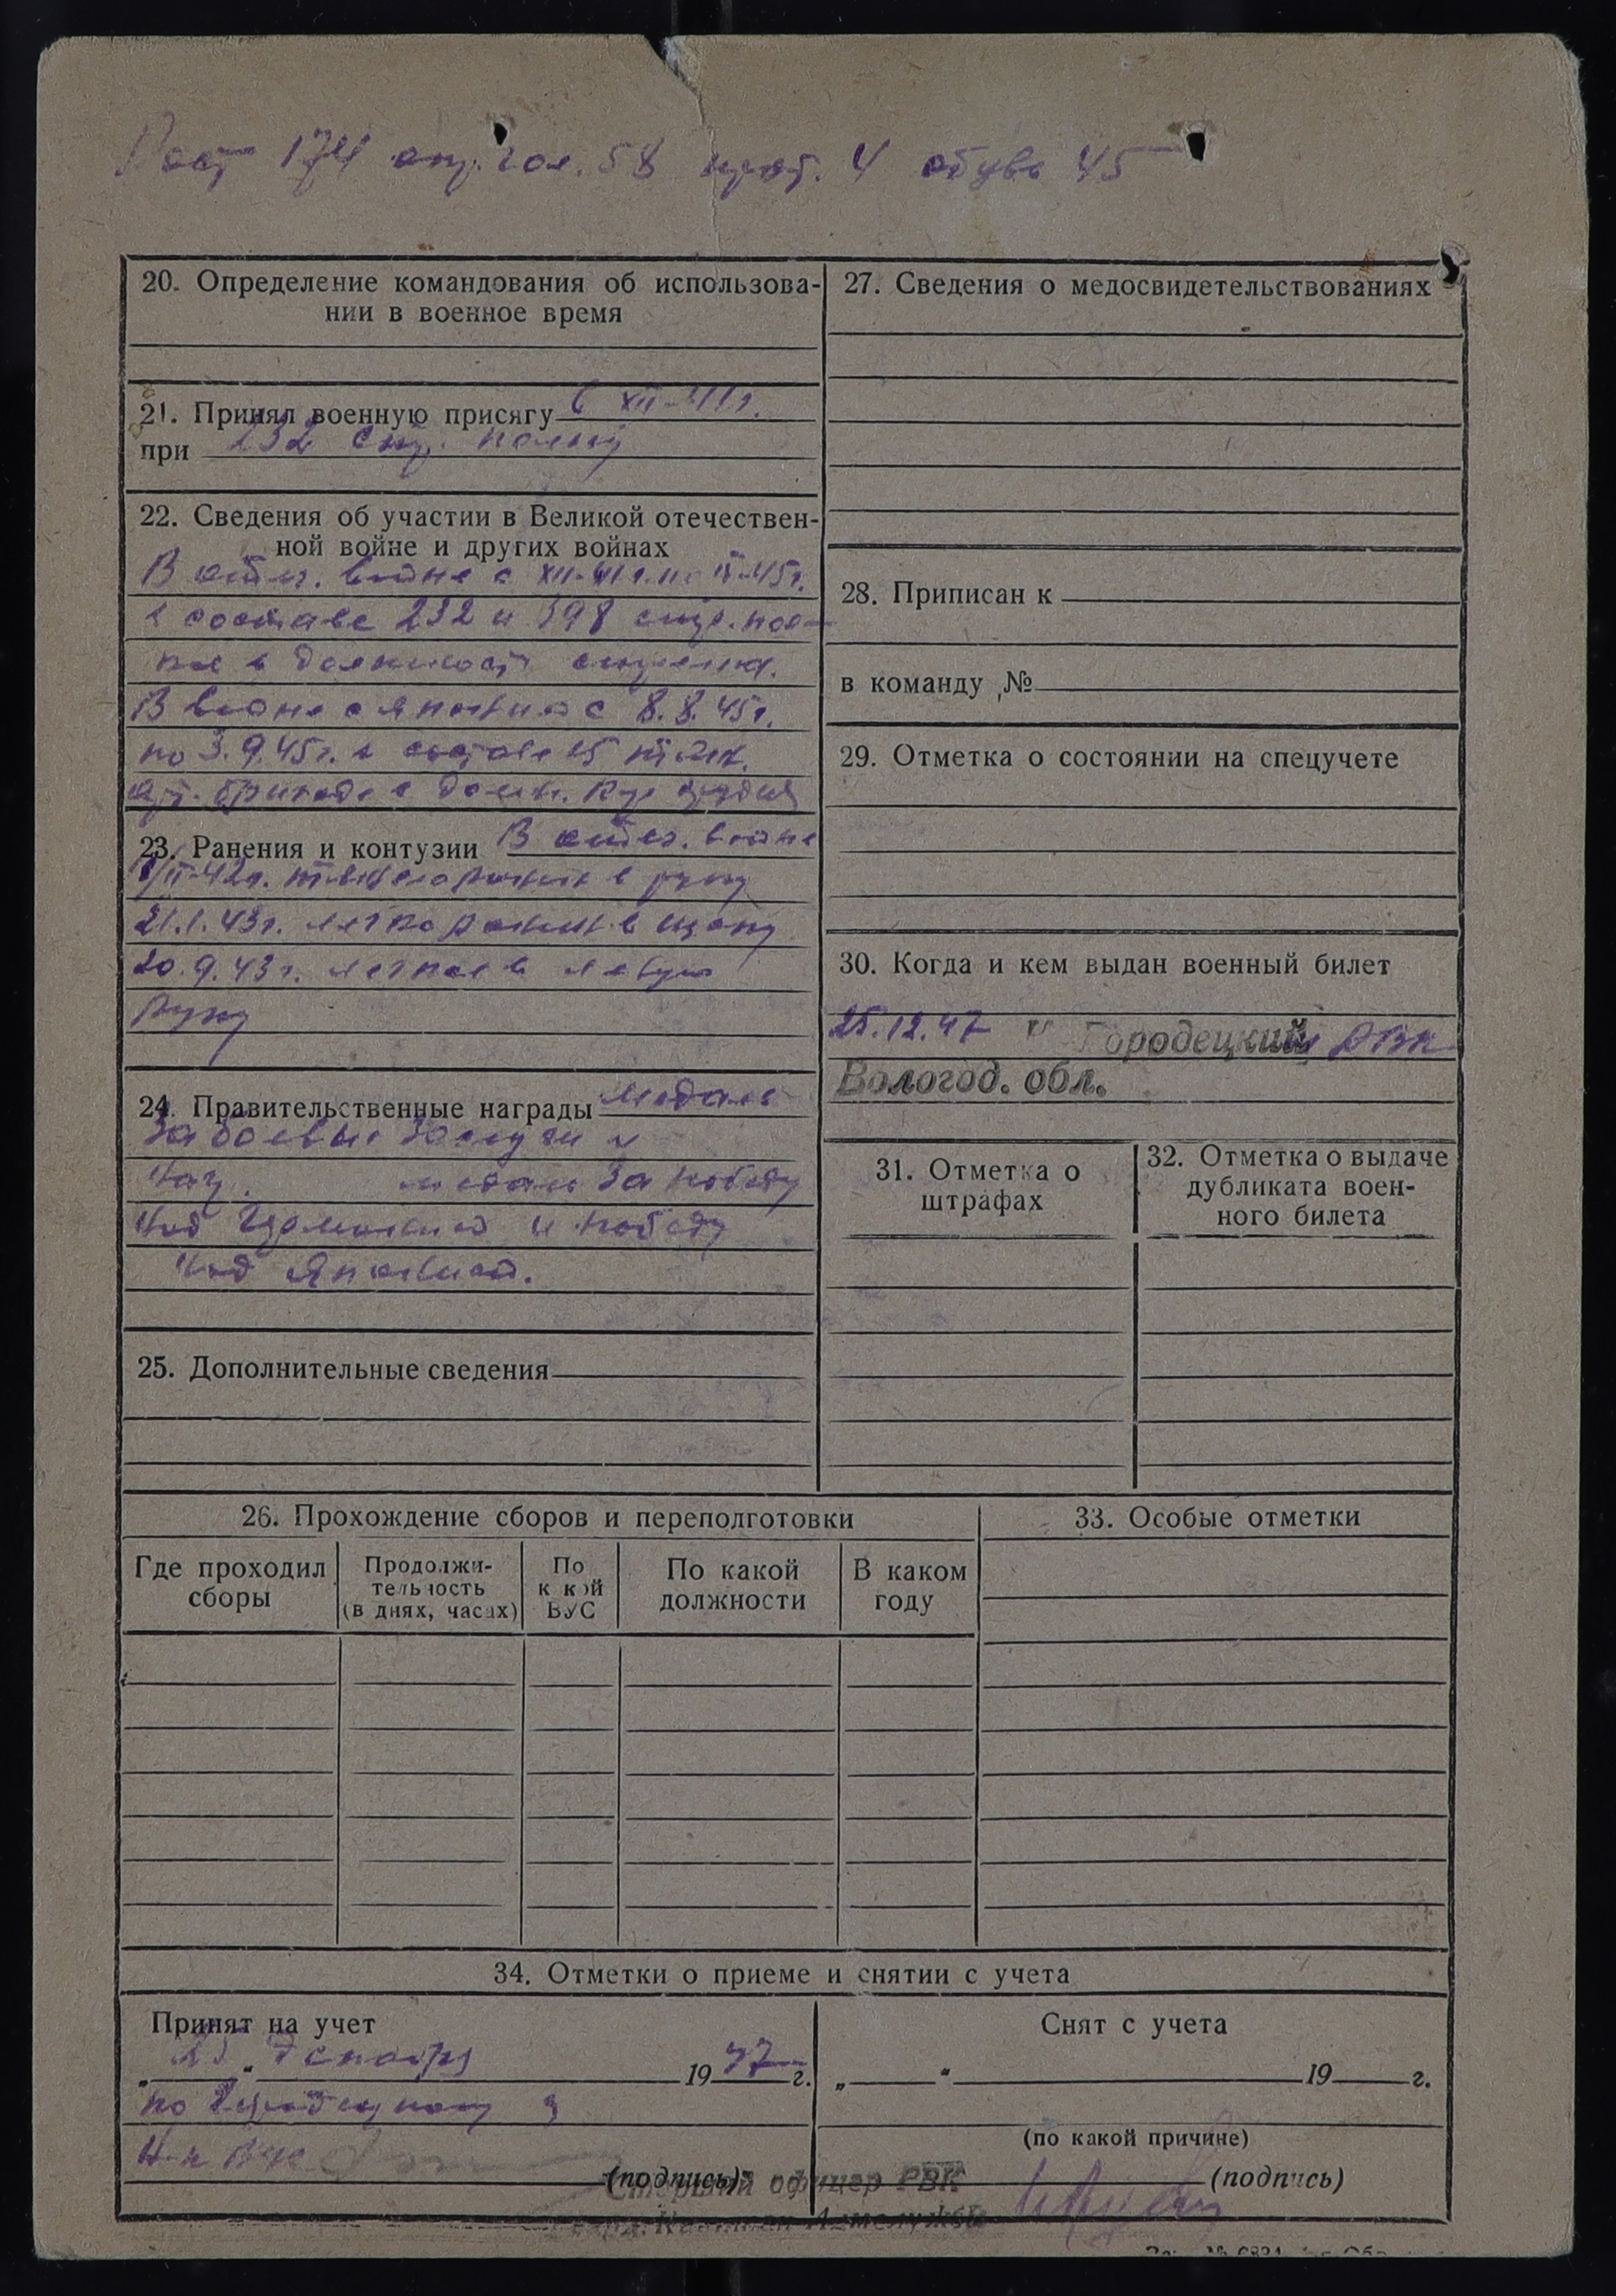 Рост 174 окр. гол. 58 прот. 4 обувь 45
20. Определение командования об использова-
нии в военное время
21. Принял военную присягу 6 XII-41г.
при 232 стр. полку
22. Сведения об участии в Великой отечествен-
ной войне и других войнах
В отеч. войне с XII-41 г. по 45г.
в составе 232 и 598 стр. пол-
ка в должност стрелка.
В войне с Японией с 8.8.45г.
по 3.9.45г. в составе
арт. бригады в должн. орудия
23. Ранения и контузии В отеч. войне
II-42г. ранен в руку
21.1.43г. легко ранен в щеку
20.9.43г. легкое в левую
руку
24. Правительственные награды медаль
За боевые заслуги и
наг. медаль За победу
над Германией и победу
над Японией.
25. Дополнительные сведения
26. Прохождение сборов и переподготовки
Где проходил
сборы
Продолжи-
тельность
(в днях, часах)
По
какой
ВУС
По какой
должности
В каком
году
27. Сведения о медосвидетельствованиях
28. Приписан к
в команду №
29. Отметка о состоянии на спецучете
30. Когда и кем выдан военный билет
25.12.47 Городецким РВК
Вологод. обл.
31. Отметка о
штрафах
32. Отметка о выдаче
дубликата воен-
ного билета
33. Особые отметки
34. Отметки о приеме и снятии с учета
Принят на учет
„25" декабря 1947 г.
по Городецкому
(подпись)
Снят с учета
„ " 19 г.
(по какой причине)
(подпись)
Старший офицер РВК